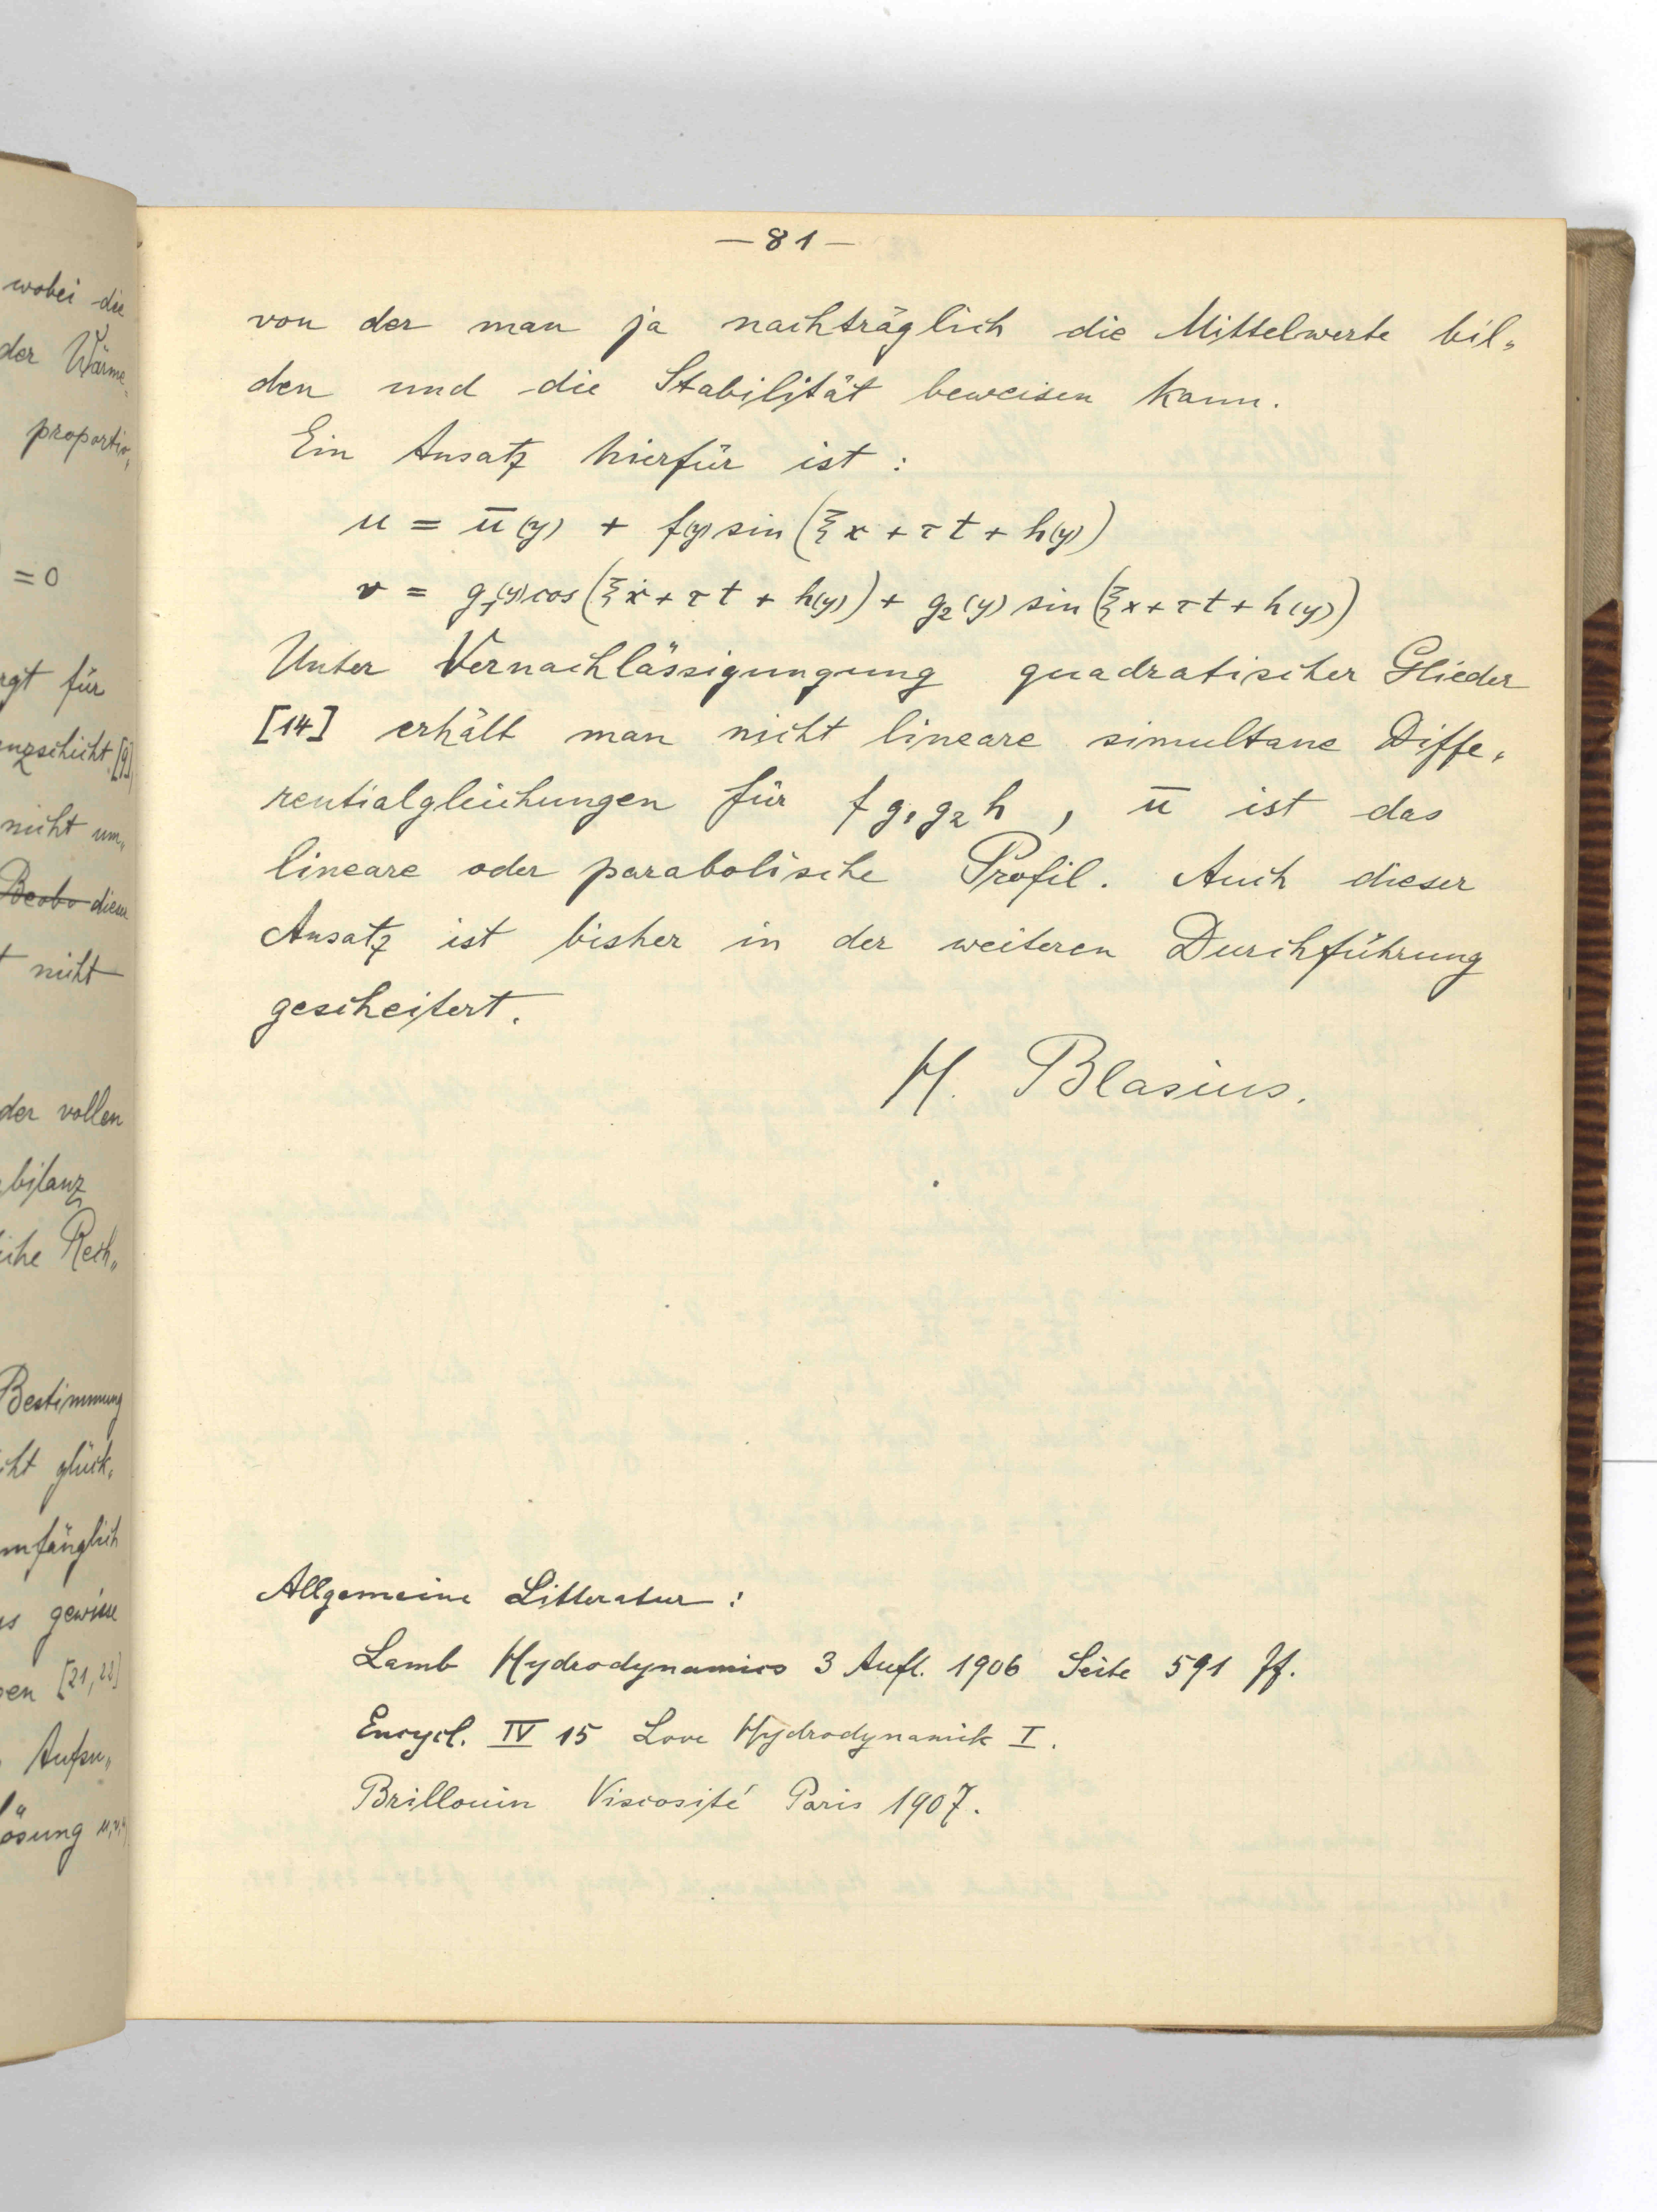 wobei die
der Wärme„
proportio„
= 0
für
nicht um„
Beobo diese
nicht
der vollen
bilanz
Rech„
Bestimmung
glück„
gewisse
[21, 22]
Aufsu„
— 81 —
von der man ja nachträglich die Mittelwerte bil„
den und die Stabilität beweisen kann.
Ein Ansatz hierfür ist :
u = ū(y) + f(y) sin (ξx + τt + h(y))
v = g₁(y) cos (ξx + τt + h(y)) + g₂(y) sin (ξx + τt + h(y))
Unter Vernachlässigungung quadratischer Glieder
[14] erhält man nicht lineare simultane Diffe„
rentialgleichungen für f g₁ g₂ h , ū ist das
lineare oder parabolische Profil. Auch dieser
Ansatz ist bisher in der weiteren Durchführung
gescheitert.
H. Blasius.
Allgemeine Litteratur :
Lamb Hydrodynamics 3 Aufl. 1906 Seite 591 ff.
Encycl. IV 15 Love Hydrodynamik I.
Brillouin Viscosité Paris 1907.